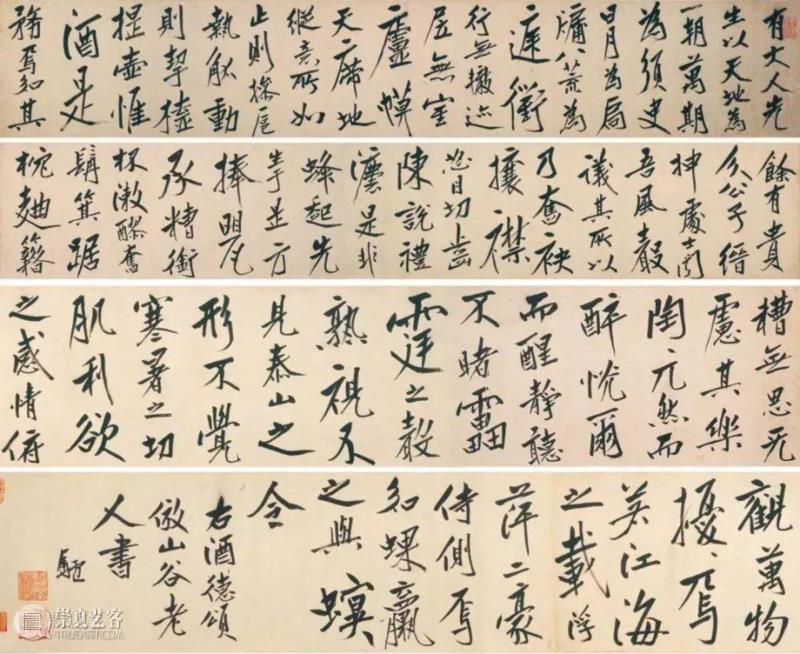 有大人先
生以天地為
一朝萬期
為須臾
日月為扃
牖八荒為
庭衢
行無轍迹
居無室
廬幙
天席地
縱意所如
止則操巵
執觚動
則挈榼
提壺惟
酒是
務焉知其
餘有貴
介公子縉
紳處士聞
吾風聲
議其所以
乃奮袂
攘襟
怒目切齒
陳說禮
灋是非
蜂起先
生於是方
捧罌
承糟銜
杯漱醪奮
髯箕踞
枕麴籍
糟無思无
慮其樂
陶〻兀然而
醉恍爾
而醒靜聽
不睹靁
霆之聲
熟視不
見泰山之
形不覺
寒暑之切
肌利欲
之感情俯
觀萬物
擾〻焉
若江海
之載浮
萍二豪
侍側焉
如蜾蠃
之與螟
令
右酒德頌
倣山谷老
人書
崇真艺客
TRUEART.COM